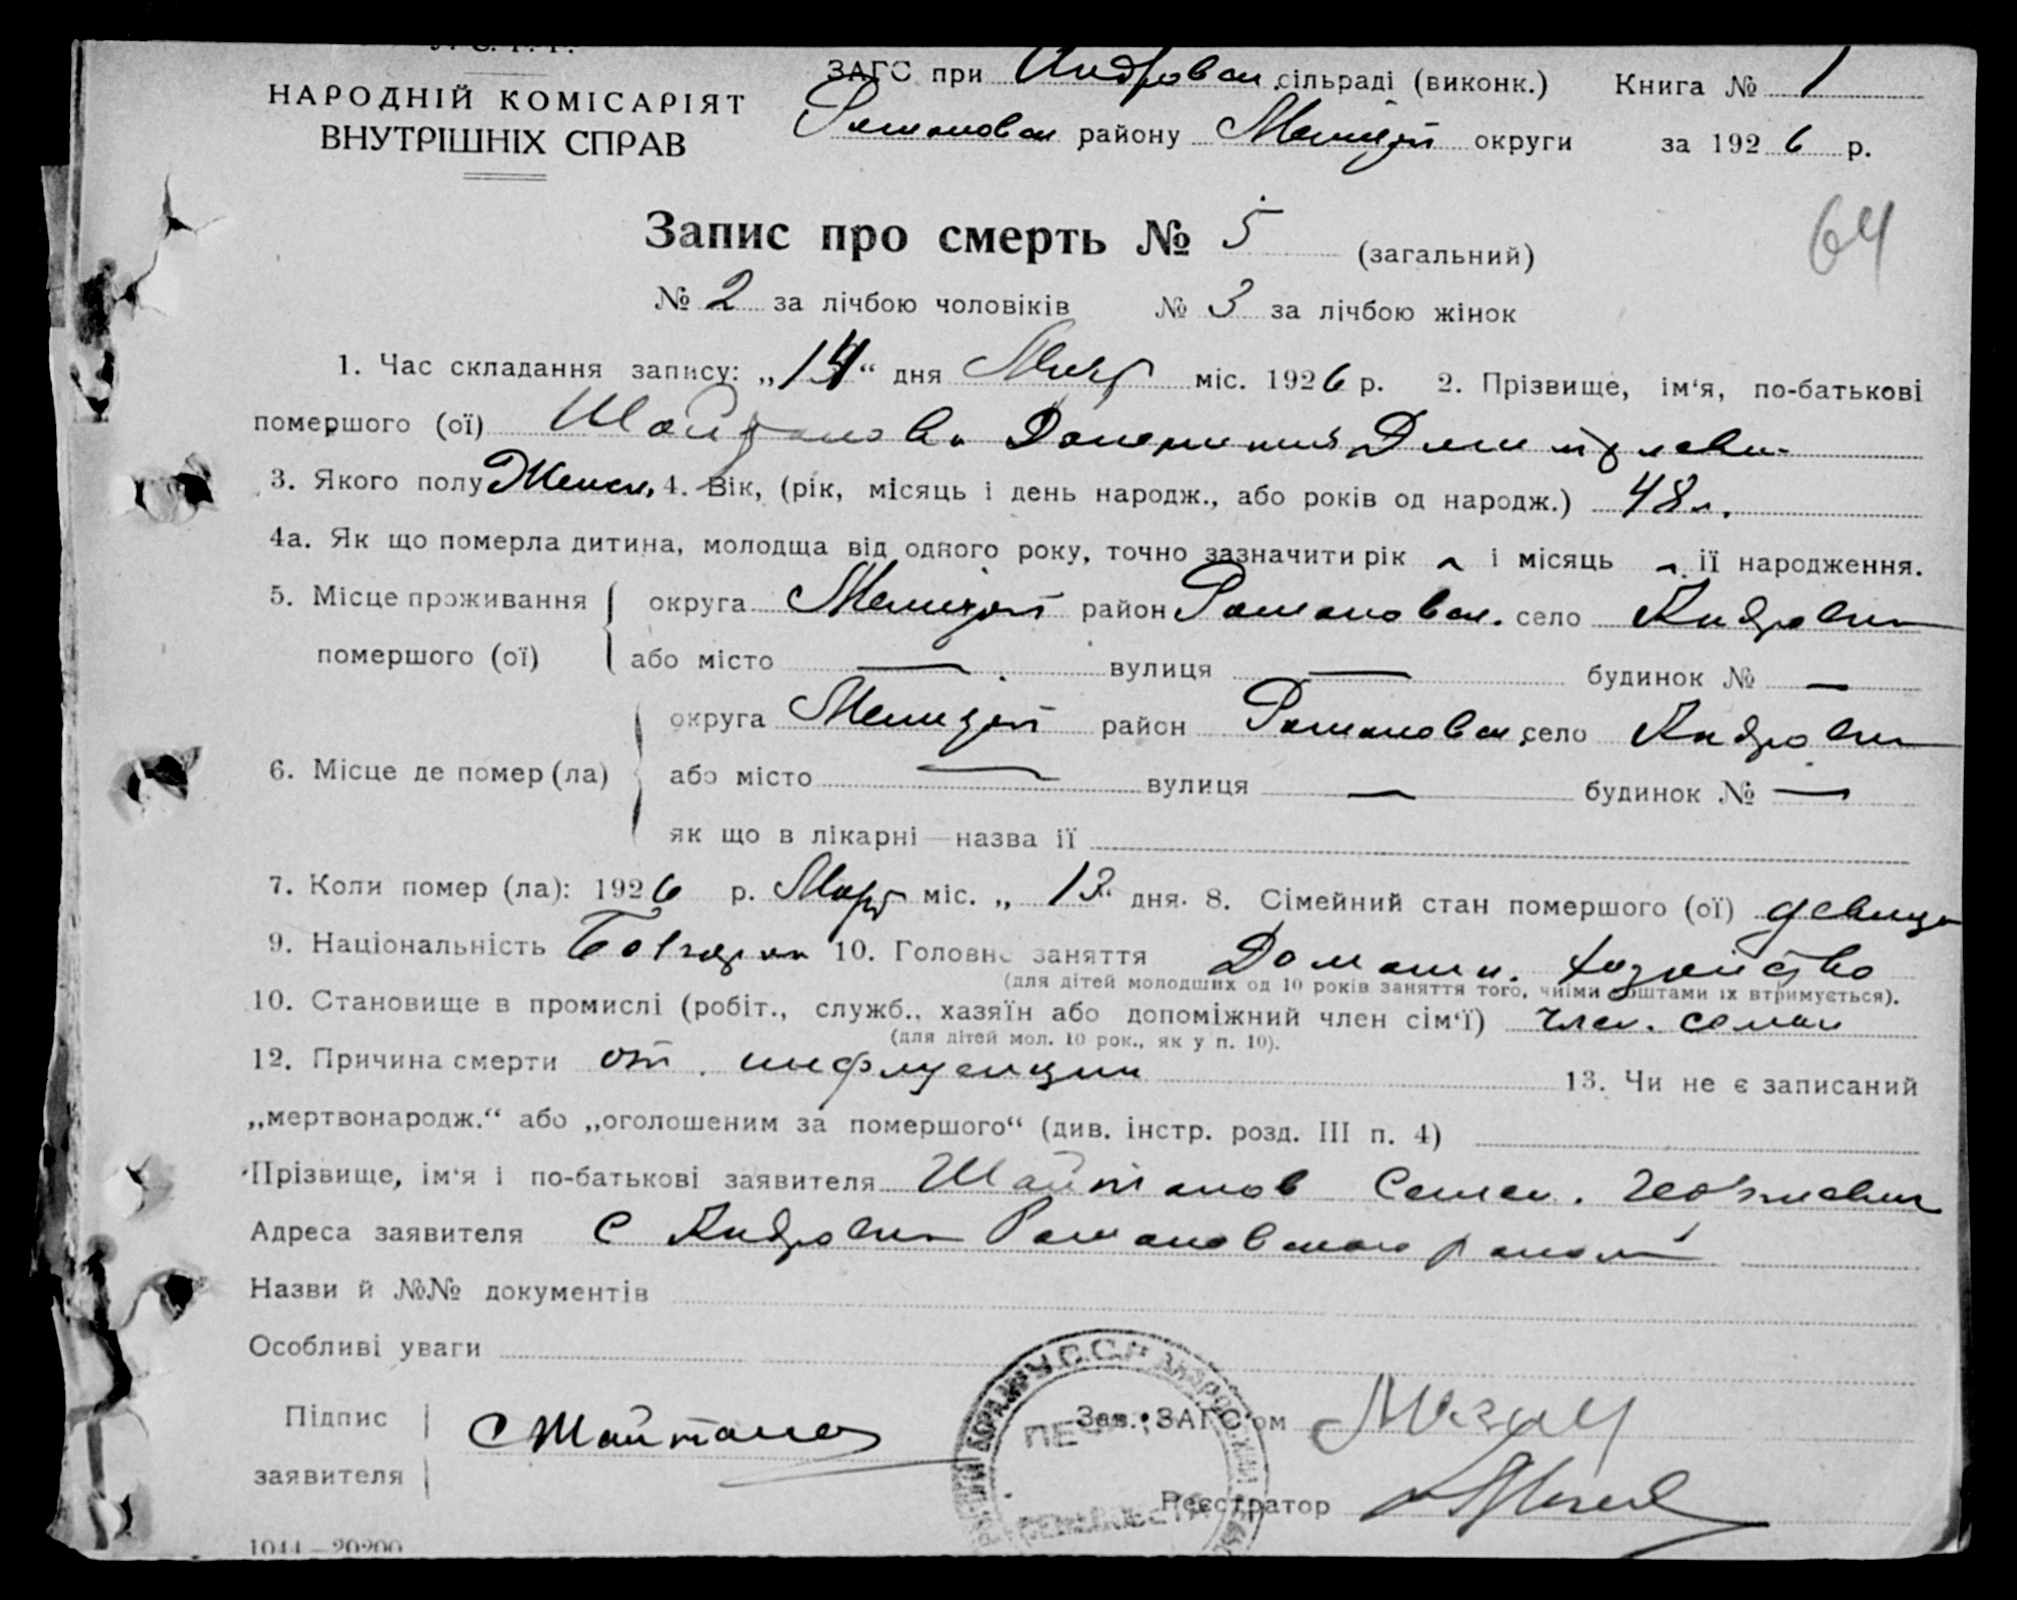 НАРОДНІЙ КОМІСАРІЯТ
ВНУТРІШНІХ СПРАВ
ЗАГС при Андровск. сільраді (виконк.) Книга № 1
Романовск району Мелитоп округи за 1926 р.
64
Запис про смерть № 5 (загальний)
№ 2 за лічбою чоловіків № 3 за лічбою жінок
1. Час складання запису: „14“ дня Март міс. 1926 р. 2. Прізвище, ім‘я, по-батькові
помершого (ої) Шайтанова
3. Якого полу Женск. 4. Вік, (рік, місяць і день народж., або років од народж.) 48 л.
4а. Як що померла дитина, молодща від одного року, точно зазначити рік і місяць її народження.
5. Місце проживання округа Мелитоп район Романовск. село Андровка
помершого (ої) або місто — вулиця — будинок № —
округа Мелитоп район Романовск село Андровка
6. Місце де помер (ла) або місто — вулиця — будинок № —
як що в лікарні—назва її
7. Коли помер (ла): 1926 р. Март міс. „ 13“ дня. 8. Сімейний стан помершого (ої) девица
9. Національність Болгарка 10. Головне заняття Домашн. хозяйство
(для дітей молодших од 10 років заняття того, чиїми коштами їх втримується).
10. Становище в промислі (робіт., служб., хазяїн або допоміжний член сім‘ї) член. семьи
(для дітей мол. 10 рок., як у п. 10).
12. Причина смерти от инфлуенции 13. Чи не є записаний
„мертвонародж.“ або „оголошеним за помершого“ (див. інстр. розд. III п. 4)
Прізвище, ім‘я і по-батькові заявителя Шайтанов Семен. Георгиевич
Адреса заявителя С Андровка Романовского района
Назви й №№ документів
Особливі уваги
Підпис
заявителя
СШайтанов
Зав. ЗАГС‘ом
Реєстратор
ПЕЧАТЬ
1044—20200